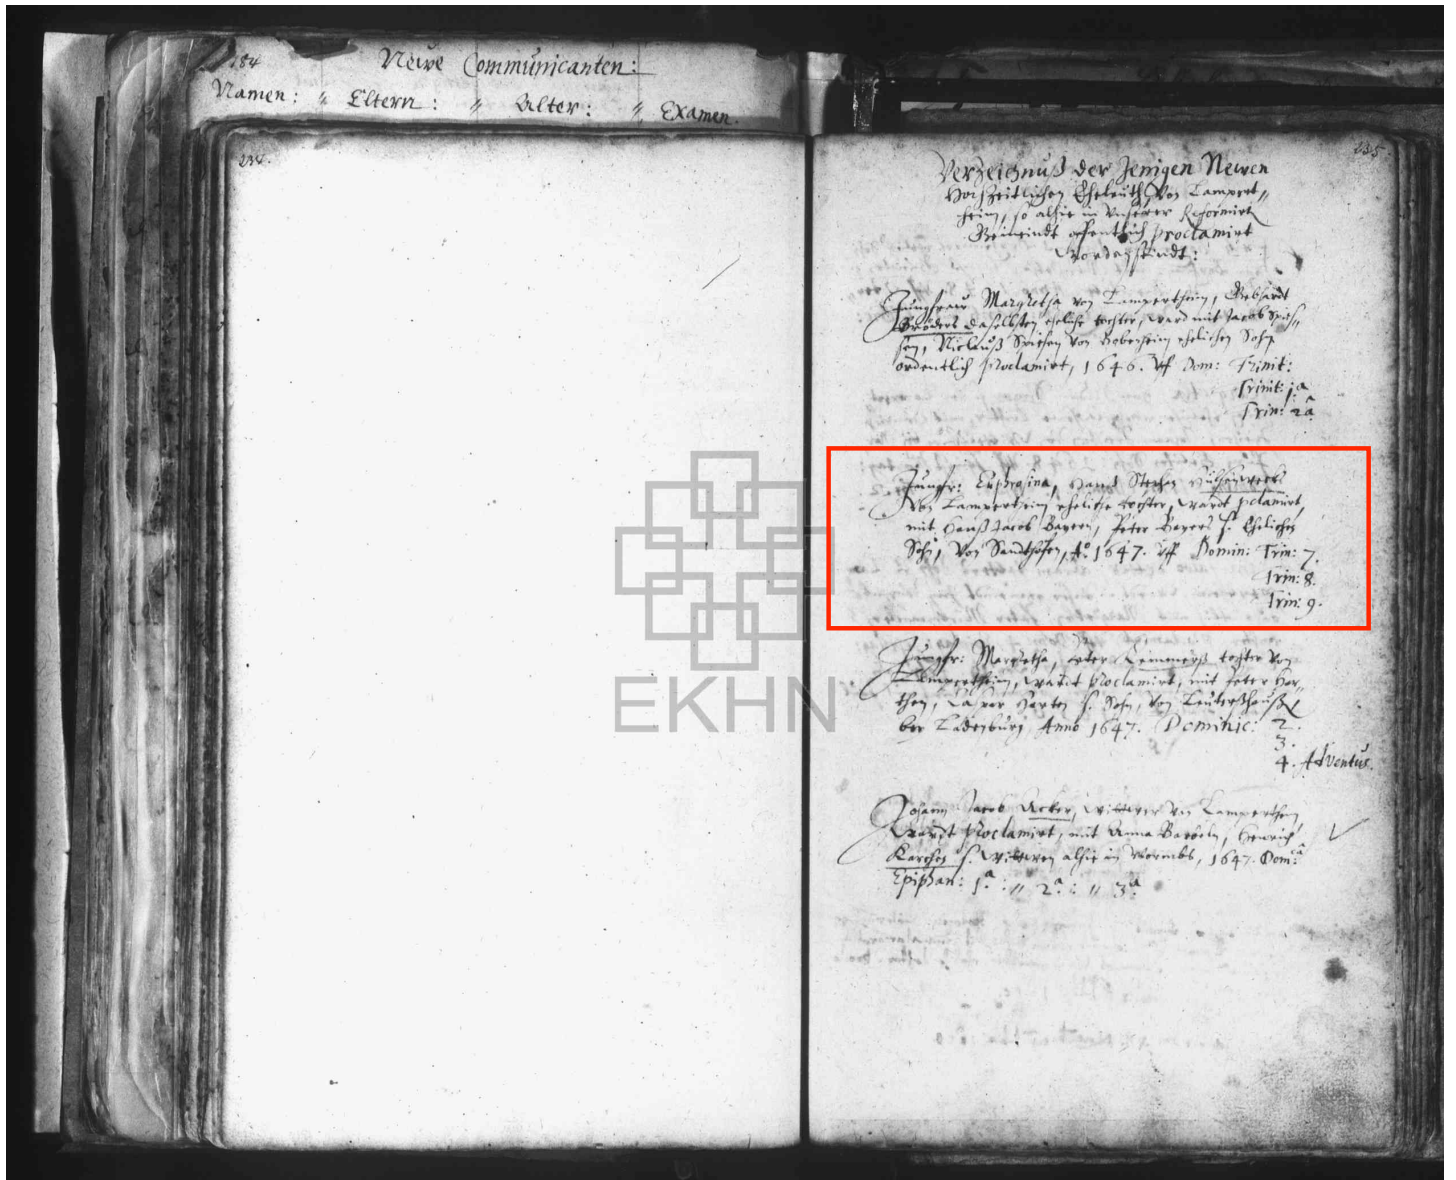 184
Newe Communicanten:
Namen: " Eltern: " Alter: " Examen.
234.
235.
Verzeichnuß der Jenigen Newen
Hochzeitlichen Eheleuth, von Lampert,,
heim, so alhie in Unserer Reformirt
Gemeindt offentlich proclamirt
worden sindt:
Jungfraw Margretha von Lampertheim, Gebhardt
Bröders daselbsten eheliche tochter, ward mit Jacob
Niclauß von Boberheim ehelichen Sohn
ordentlich proclamirt, 1646. uff Dom: Trinit:
Trinit: 1a
Trin: 2a
Jungfr: Euphrosina, Hanß Stephan
von Lampertheim eheliche tochter, wardt pclamirt,
mit Hanß Jacob Bayern, Peter Bayers s. Ehelichen
Sohn, von Sandthofen, Ao 1647. uff Domin: Trin: 7.
Trin: 8.
Trin: 9.
Jungfr: Margretha, Peter tochter von
Lampertheim, wardt proclamirt, mit Peter Har,,
then, Caspar Harten s. Sohn, von Leutershaußen
bey Ladenburg, Anno 1647. Dominic: 2.
3.
4. Adventus.
Johann Jacob Acker, wittwer von Lampertheim
wardt proclamirt, mit Anna Barbeln, Henrich
Karches s. wittwen alhie in Wormbs, 1647. Dom:
Epiphan: 1a: " 2a: " 3a:
EKHN